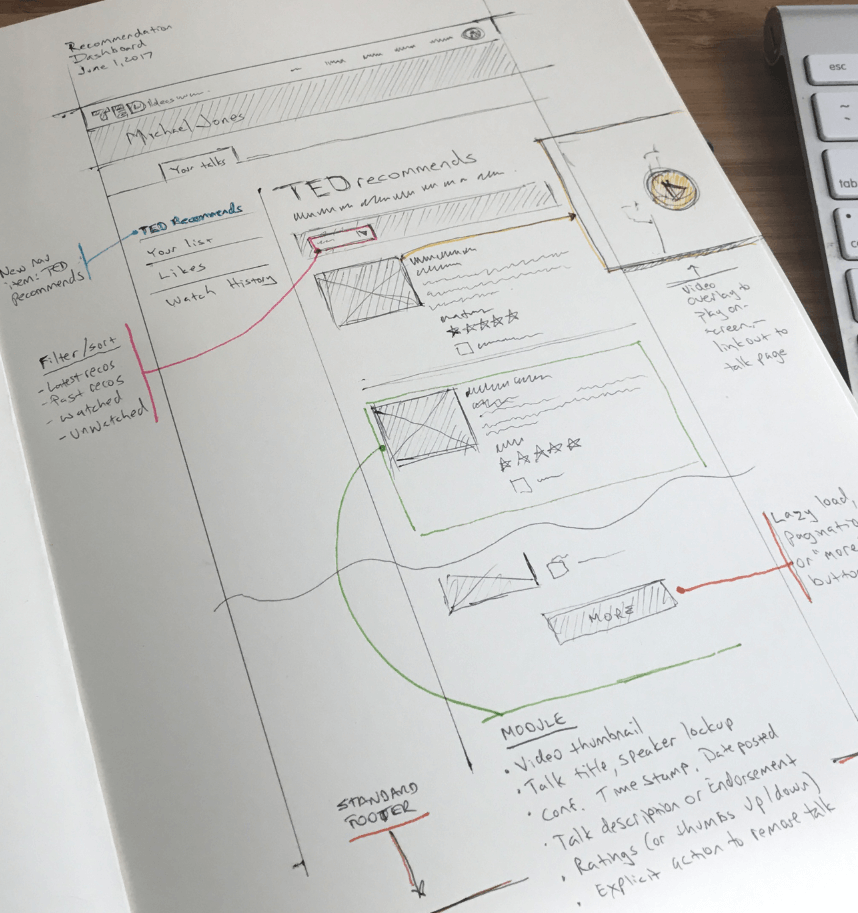 Recommendation
Dashboard
June 1, 2017
TED Ideas
Michael Jones
Your talks
TED recommends
TED Recommends
Your list
Likes
Watch History
New nav
item: TED
Recommends
Filter/sort
- Latest recos
- Past recos
- Watched
- Unwatched
Video
overlay to
play on-
screen-
link out to
talk page
Lazy load,
paginatio
or "more
butto
MORE
MODULE
• Video thumbnail
• Talk title, speaker lockup
• Conf. Time Stamp. Date posted
• Talk description or Endorsement
• Ratings (or thumbs up/down)
• Explicit action to remove talk
STANDARD
FOOTER
esc
~
tab